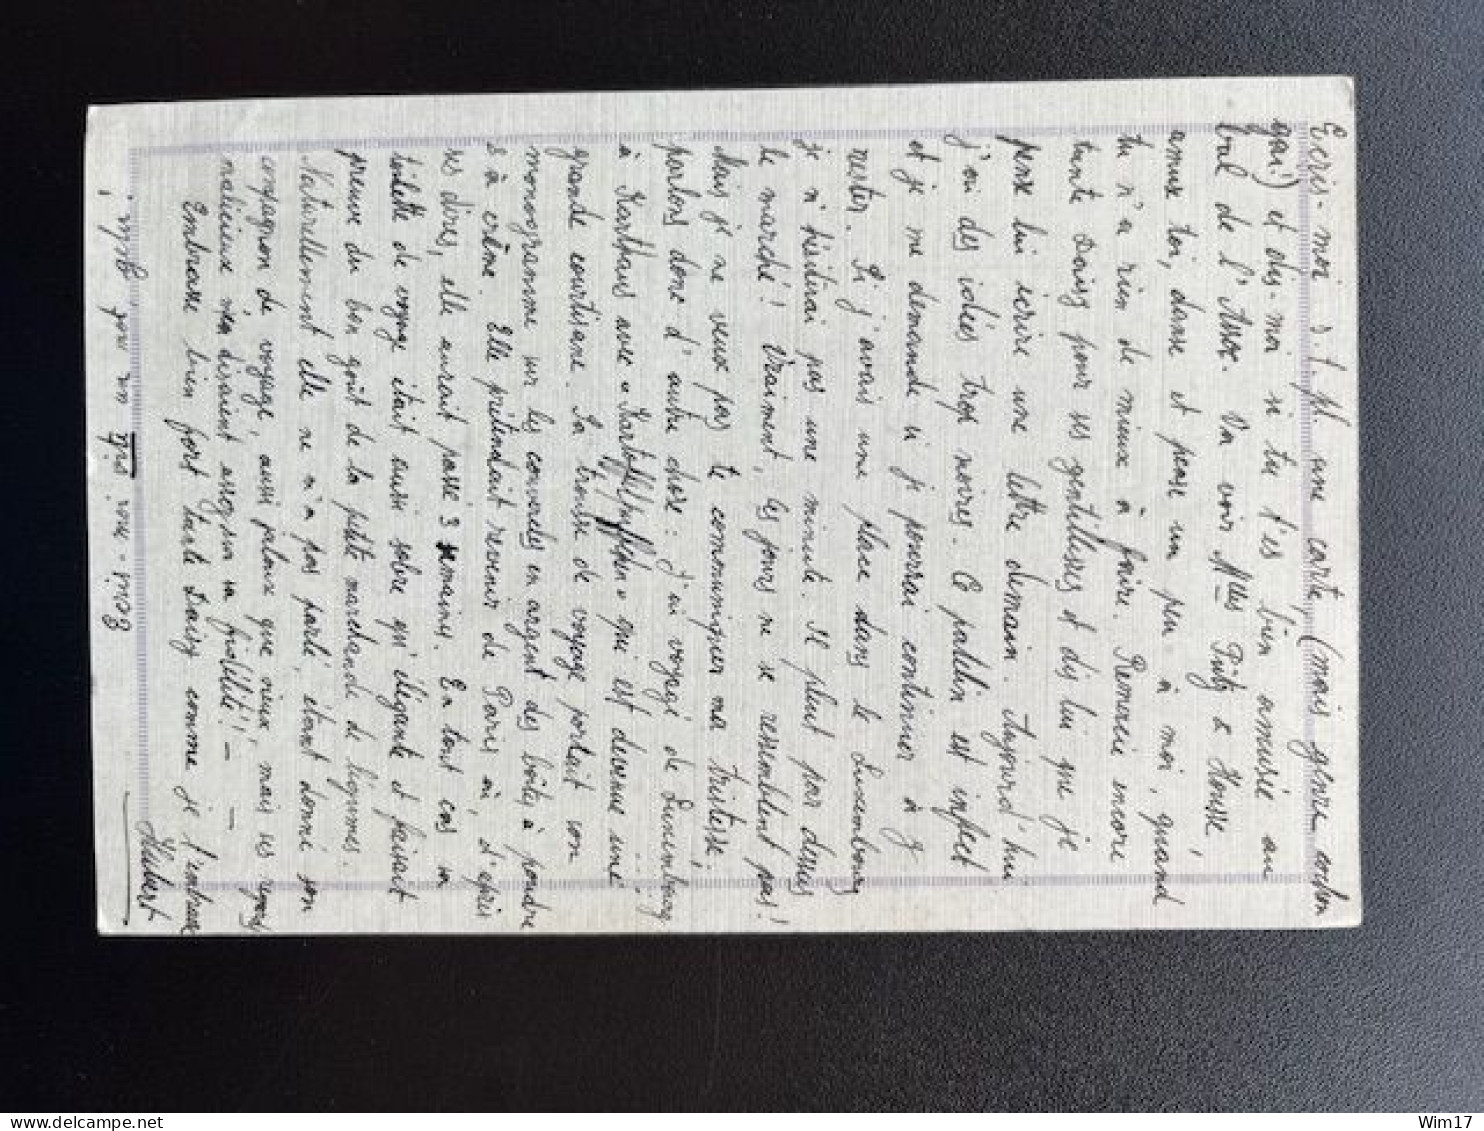 Ecris-moi s.t.pl. une carte, (mais genre
gai) et dis-moi si tu t'es bien amusée au
bal de l'Assoc. Va voir Mlles Pütz & Housse,
amuse toi, danse et pense un peu à moi, quand
tu n'a rien de mieux à faire. Remercie encore
tante Daisy pour ses gentillesses et dis lui que je
pense lui ecrire une lettre demain. Aujourd'hui
j'ai des idées trop noires. Ce patelin est infect
et je me demande si je pourrai continuer à y
rester. Si j'avais une place dans le Luxembourg
je n'hésiterai pas une minute. Il pleut par dessus
le marché! Vraiment, les jours ne se ressemblent pas!
Mais je ne veux pas te communiquer ma tristesse;
parlons donc d'autre chose: j'ai voyagé de Luxembourg
à Karthaus avec « » qui est devenue une
grande courtisane. Sa trousse de voyage portait son
monogramme sur les couvercles en argent des boîtes à poudre
& à crême. Elle prétendait revenir de Paris où, d'après
ses dires, elle aurait passé 3 semaines. En tout cas sa
toilette de voyage était aussi sobre qu'élégante et faisait
preuve du bon goût de la petite marchande de légumes.
Naturellement elle ne m'a pas parlé, étant donné son
compagnon de voyage, aussi jaloux que vieux, mais ses
malicieux m'en disaient assez sur sa fidélité! — —
Embrasse bien fort tante Daisy comme je t'embrasse
Hubert
Ecris-moi vite un mot